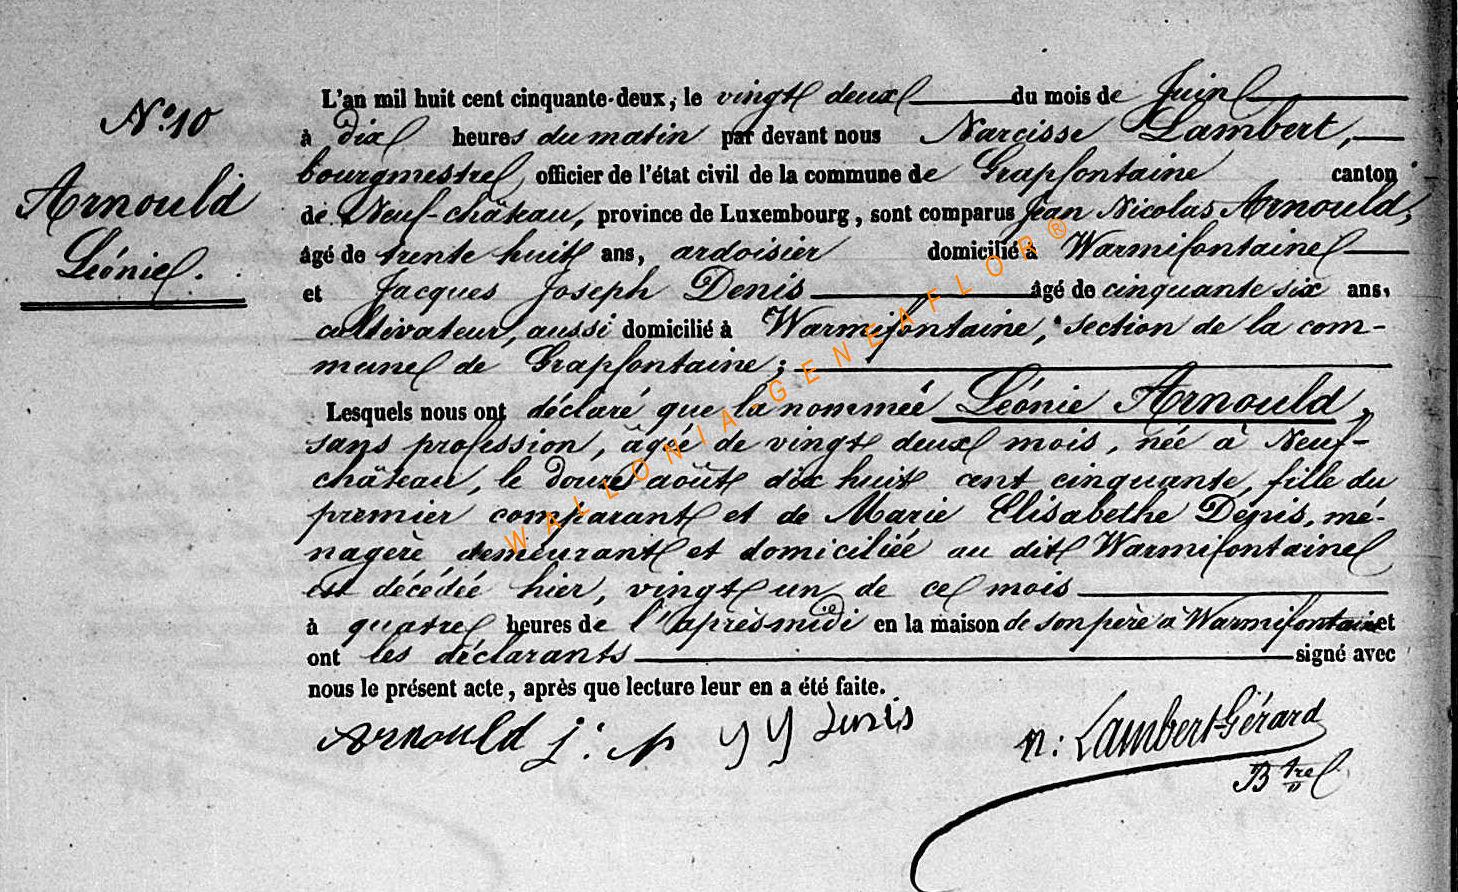 N.º 10
Arnould
Léonie.
L'an mil huit cent cinquante-deux, le vingt deux du mois de Juin
à dix heures du matin par devant nous Narcisse Lambert,
bourgmestre, officier de l'état civil de la commune de Grapfontaine canton
de Neuf-château, province de Luxembourg, sont comparus Jean Nicolas Arnould,
âgé de trente huit ans, ardoisier domicilié à Warmifontaine
et Jacques Joseph Denis âgé de cinquante six ans,
cultivateur, aussi domicilié à Warmifontaine, section de la com-
mune de Grapfontaine;
Lesquels nous ont déclaré que la nommée Léonie Arnould,
sans profession, âgée de vingt deux mois, née à Neuf-
château, le douze août dix huit cent cinquante, fille du
premier comparant et de Marie Elisabethe Denis, mé-
nagère demeurant et domiciliée au dit Warmifontaine
est décédée hier, vingt un de ce mois
à quatre heures de l'après midi en la maison de son père à Warmifontaine et
ont les déclarants signé avec
nous le présent acte, après que lecture leur en a été faite.
Arnould j: N J J Denis n: Lambert-Gérard
Btre
WALLONIA-GENEAFLOR®